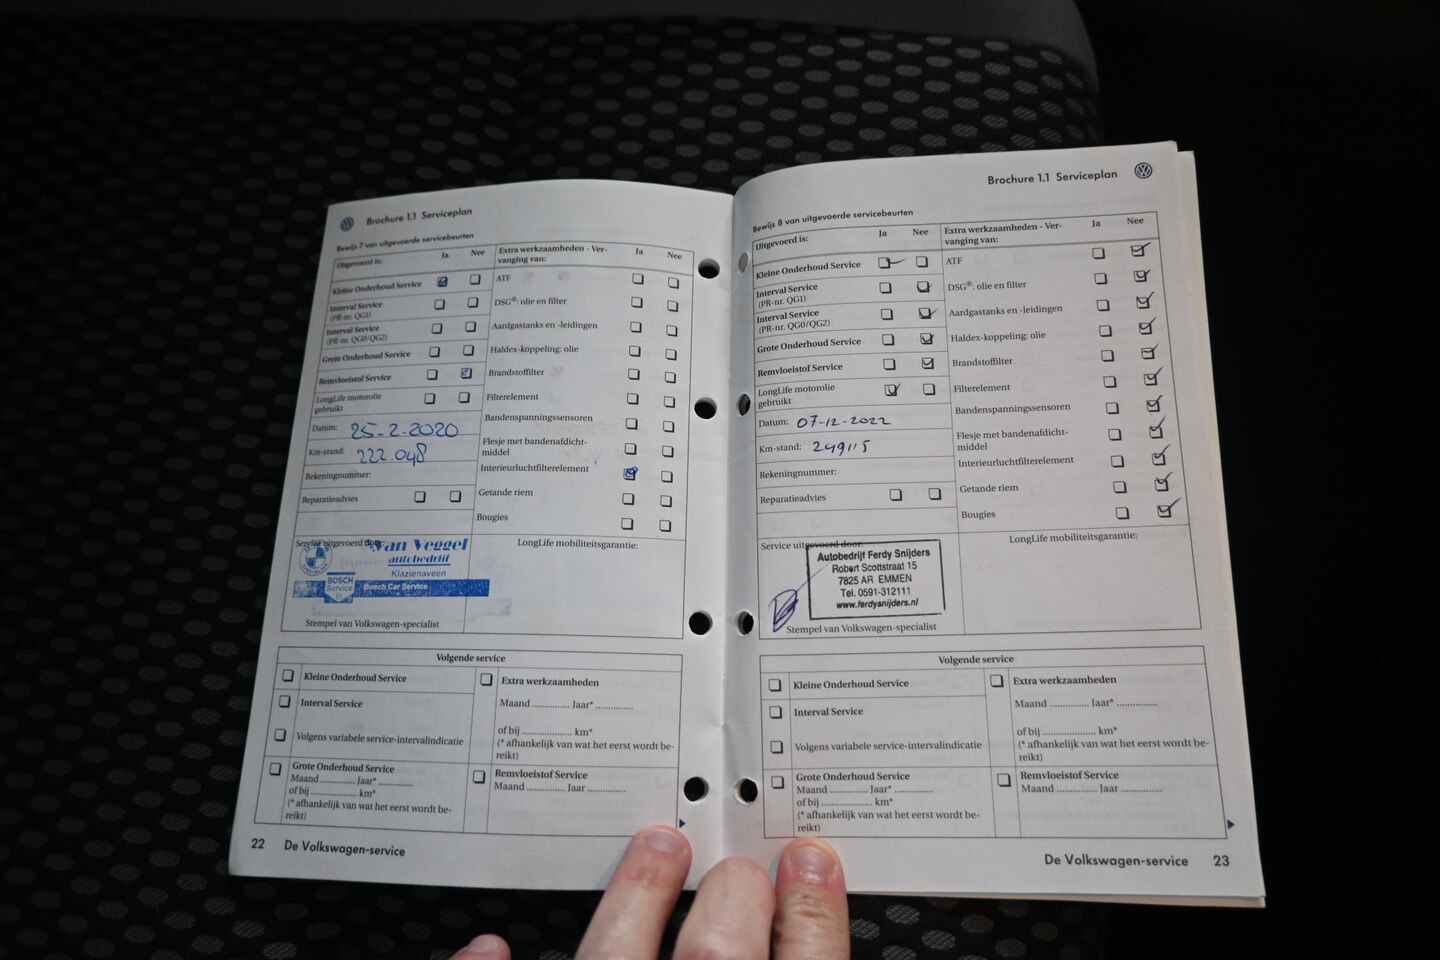 Brochure 1.1 Serviceplan
Bewijs 7 van uitgevoerde servicebeurten
Uitgevoerd is:
Ja
Nee
Kleine Onderhoud Service
Interval Service
(PR-nr. QG1)
Interval Service
(PR-nr. QG0/QG2)
Grote Onderhoud Service
Remvloeistof Service
LongLife motorolie
gebruikt
Datum: 25-2-2020
Km-stand: 222.048
Rekeningnummer:
Reparatieadvies
Extra werkzaamheden - Ver-
vanging van:
Ja
Nee
ATF
DSG®: olie en filter
Aardgastanks en -leidingen
Haldex-koppeling: olie
Brandstoffilter
Filterelement
Bandenspanningssensoren
Flesje met bandenafdicht-
middel
Interieurluchtfilterelement
Getande riem
Bougies
Service uitgevoerd door:
van Veggel
autobedrijf
Klazienaveen
BOSCH
Service
Bosch Car Service
Stempel van Volkswagen-specialist
LongLife mobiliteitsgarantie:
Volgende service
Kleine Onderhoud Service
Interval Service
Volgens variabele service-intervalindicatie
Grote Onderhoud Service
Maand ............. Jaar* .............
of bij .................... km*
(* afhankelijk van wat het eerst wordt be-
reikt)
Extra werkzaamheden
Maand .............. Jaar* ..............
of bij .................... km*
(* afhankelijk van wat het eerst wordt be-
reikt)
Remvloeistof Service
Maand .............. Jaar ..............
22 De Volkswagen-service
Brochure 1.1 Serviceplan
Bewijs 8 van uitgevoerde servicebeurten
Uitgevoerd is:
Ja
Nee
Kleine Onderhoud Service
Interval Service
(PR-nr. QG1)
Interval Service
(PR-nr. QG0/QG2)
Grote Onderhoud Service
Remvloeistof Service
LongLife motorolie
gebruikt
Datum: 07-12-2022
Km-stand: 249115
Rekeningnummer:
Reparatieadvies
Extra werkzaamheden - Ver-
vanging van:
Ja
Nee
ATF
DSG®: olie en filter
Aardgastanks en -leidingen
Haldex-koppeling: olie
Brandstoffilter
Filterelement
Bandenspanningssensoren
Flesje met bandenafdicht-
middel
Interieurluchtfilterelement
Getande riem
Bougies
Service uitgevoerd door:
Autobedrijf Ferdy Snijders
Robert Scottstraat 15
7825 AR EMMEN
Tel. 0591-312111
www.ferdysnijders.nl
Stempel van Volkswagen-specialist
LongLife mobiliteitsgarantie:
Volgende service
Kleine Onderhoud Service
Interval Service
Volgens variabele service-intervalindicatie
Grote Onderhoud Service
Maand .............. Jaar* ..............
of bij .................... km*
(* afhankelijk van wat het eerst wordt be-
reikt)
Extra werkzaamheden
Maand .............. Jaar* ..............
of bij .................... km*
(* afhankelijk van wat het eerst wordt be-
reikt)
Remvloeistof Service
Maand .............. Jaar ..............
De Volkswagen-service 23